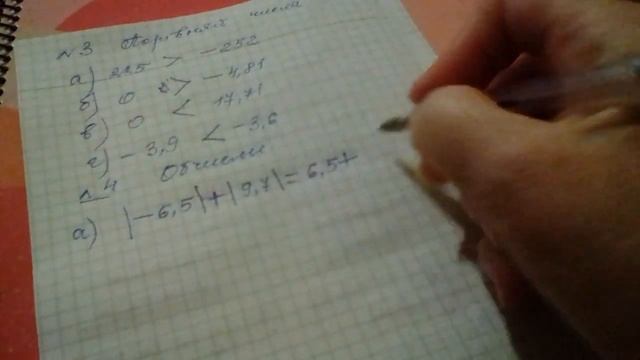 №3 Порівняй числа
а) 225 > -252
б) 0 > -4,81
в) 0 < 17,71
г) -3,9 < -3,6
№4 Обчисли
а) |-6,5|+|9,7|= 6,5+